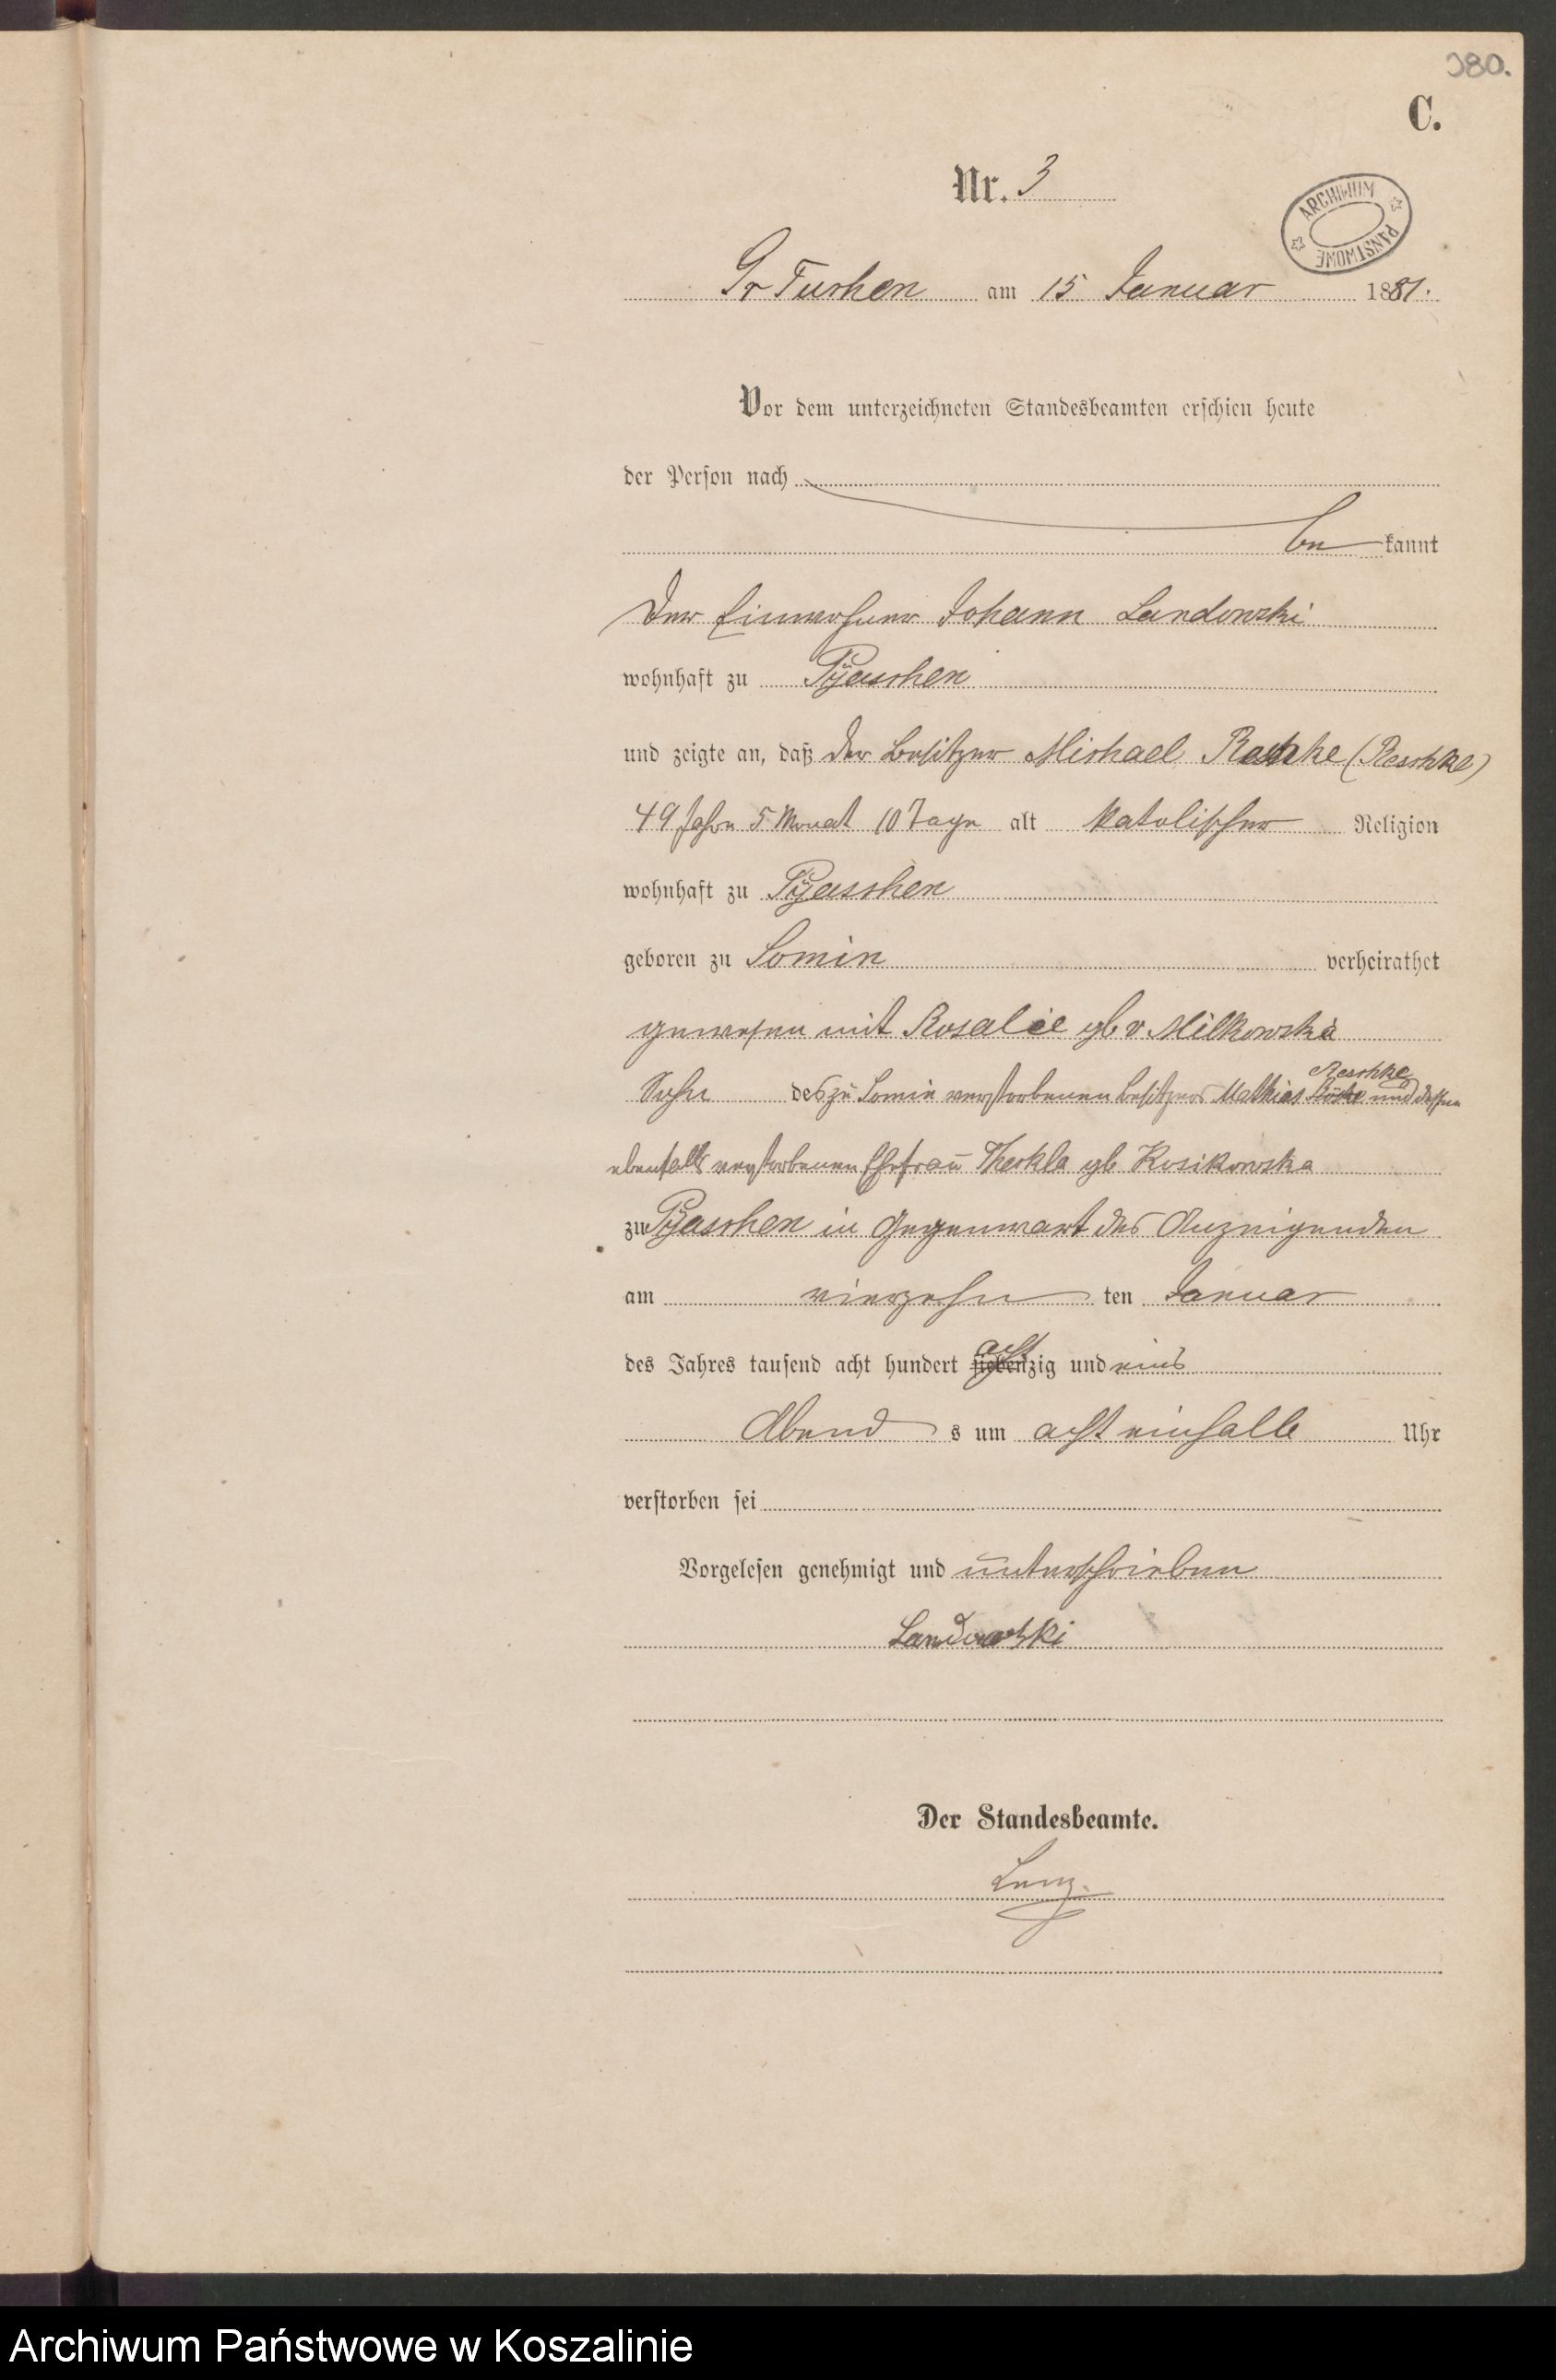 380.
C.
Nr. 3
ARCHIWUM PAŃSTWOWE
Gr Tuchen am 15 Januar 1881.
Vor dem unterzeichneten Standesbeamten erschien heute
der Person nach
be kannt
der Einwohner Johann Landowski
wohnhaft zu Pyaschen
und zeigte an, daß der Besitzer Michael Reschke (Reschke)
49 Jahre 5 Monat 10 Tage alt katolischer Religion
wohnhaft zu Pyaschen
geboren zu Somin verheirathet
gewesen mit Rosalie gb v Milkowska
Reschke
Sohn des zu Somin verstorbenen Besitzers Mathias und dessen
ebenfalls verstorbenen Ehefrau Theckla gb Kosikowska
zu Pyaschen in Gegenwart des Anzeigenden
am vierzehn ten Januar
acht
des Jahres tausend acht hundert siebenzig und eins
Abend s um acht einhalb Uhr
verstorben sei
Vorgelesen genehmigt und unterschrieben
Landowski
Der Standesbeamte.
Lenz.
Archiwum Państwowe w Koszalinie